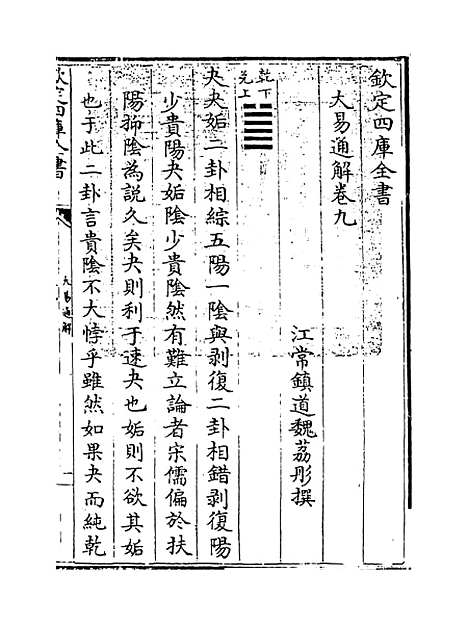 欽定四庫全書
大易通解卷九
江常鎮道魏荔彤撰
乾下
兌上
夬夬姤二卦相綜五陽一陰與剥復二卦相錯剥復陽
少貴陽夬姤陰少貴陰然有難立論者宋儒偏於扶
陽抑陰為說久矣夬則利于速夬也姤則不欲其姤
也于此二卦言貴陰不大悖乎雖然如果夬而純乾
欽定四庫全書
大易通解
一